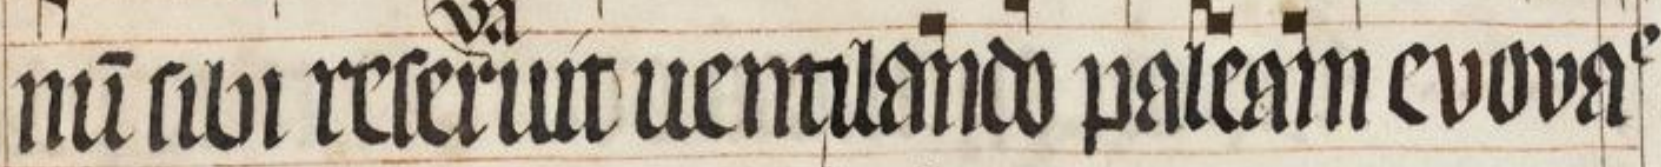 nū sibi reseruauit uentilando paleam evovae